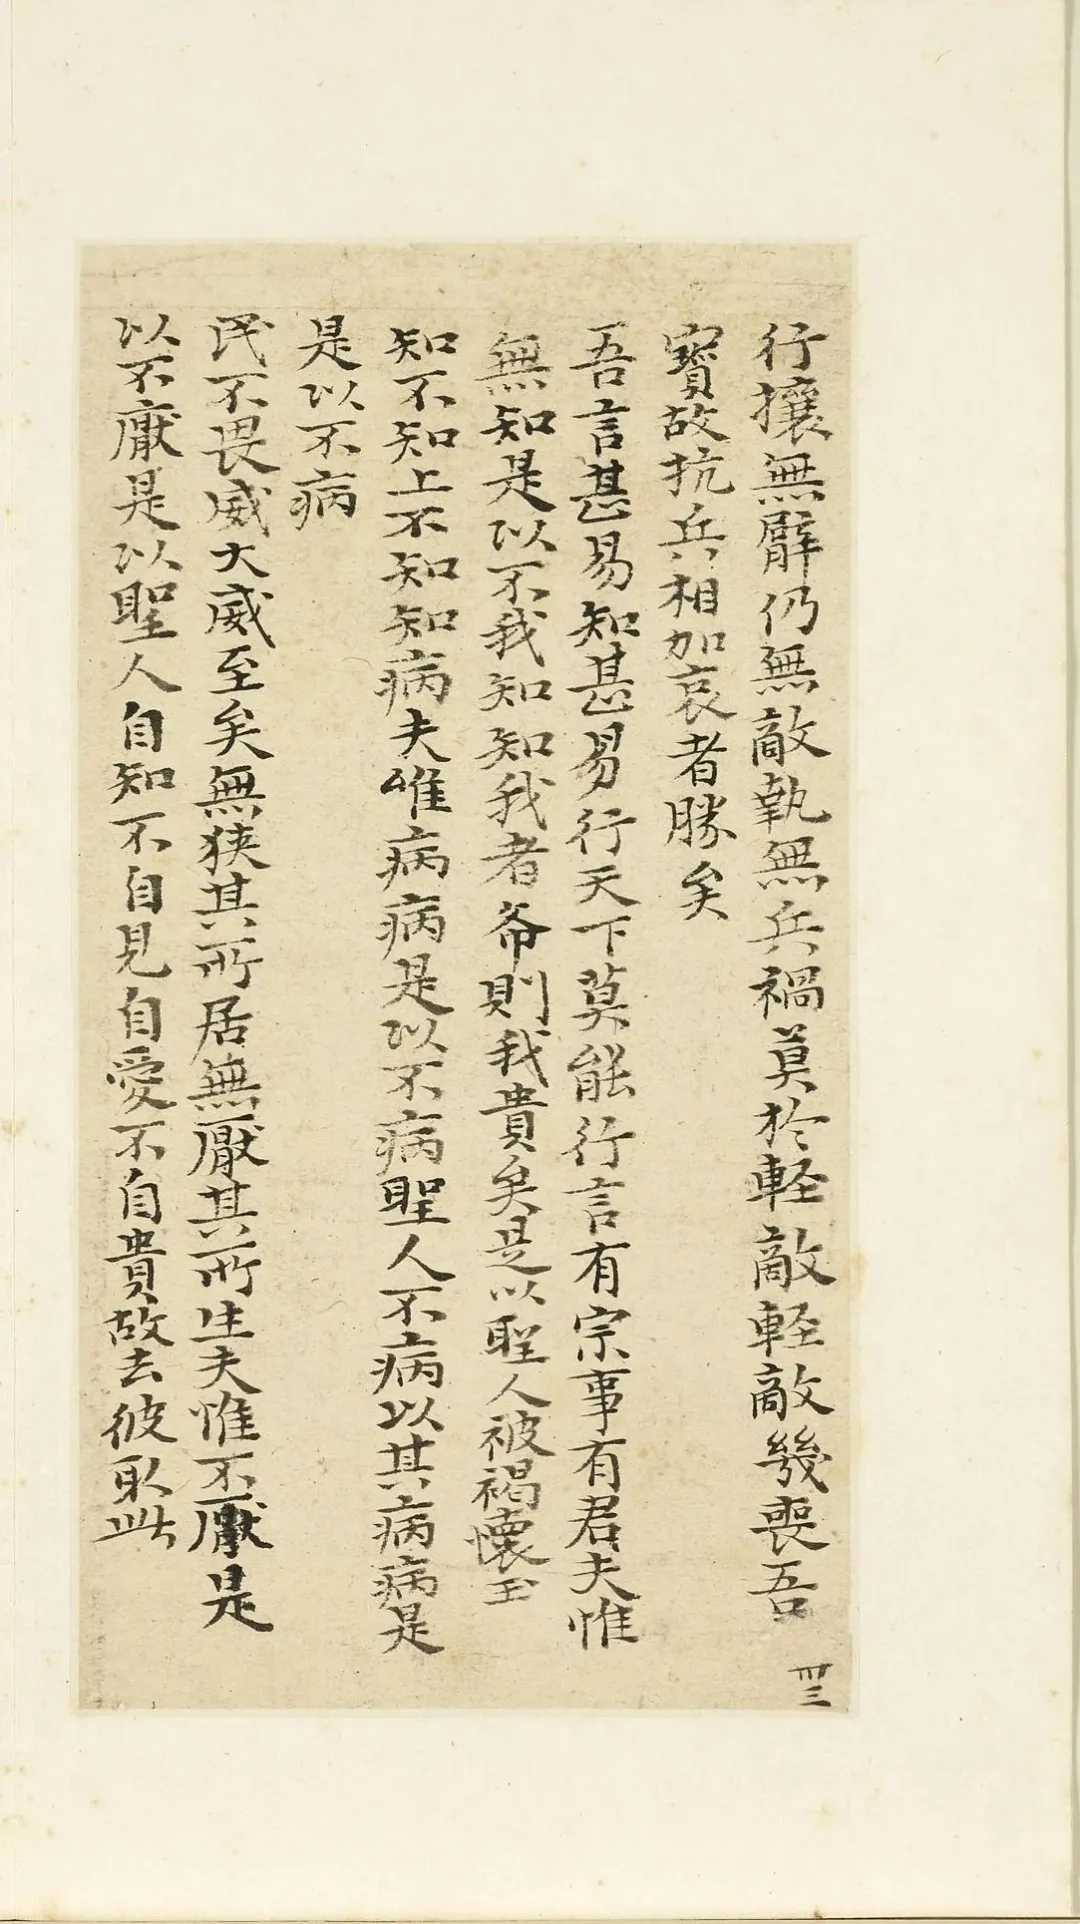 行攘無臂仍無敵執無兵禍莫於軽敵軽敵幾喪吾
寳故抗兵相加哀者勝矣
吾言甚易知甚易行天下莫能行言有宗事有君夫惟
無知是以不我知知我者希則我貴矣是以聖人被褐懷玉
知不知上不知知病夫唯病病是以不病聖人不病以其病病是
是以不病
民不畏威大威至矣無狹其所居無厭其所生夫惟不厭是
以不厭是以聖人自知不自見自愛不自貴故去彼取此
卌三